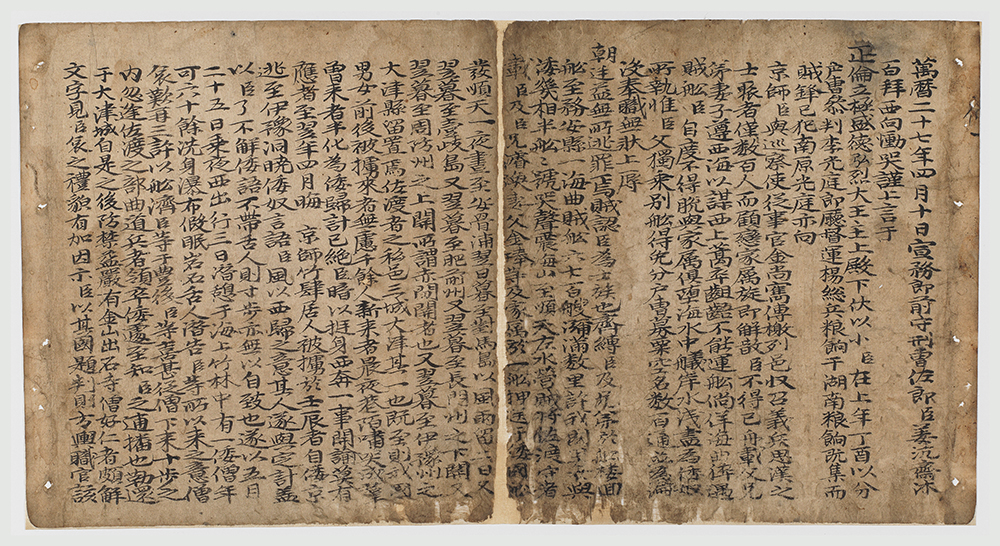 萬曆二十七年四月十日宣務郎前守刑曹佐郎臣姜沆齋沐
百拜西向慟哭謹上言于
正倫立極盛德弘烈大王主上殿下伏以小臣在上年丁酉以分
戶曹參判李光庭郎廳督運楊總兵粮餉于湖南粮餉旣集而
賊鋒已犯南原光庭亦向
京師臣與巡察使從事官金尚寯傳檄列邑収召義兵思漢之
士聚者僅數百人而顧戀家属旋即解散臣不得已舟載父兄
弟妻子遵西海以謀西上篙卒齟齬不能運船徜徉海曲猝遇
賊船臣自度不得脫與家属俱墮海水中艤岸水淺盡爲倭奴
所執惟臣父獨乘別船得免分戶曹募粟空名數百通並爲淪
沒奉職無狀上辱
朝廷益無所逃罪焉賊認臣爲士族也齊縛臣及兄濬於船樓回
船至務安縣一海曲賊船六七百艘瀰滿數里許我國男女與
倭幾相半船〻號哭聲震海山至順天左水營賊將佐渡守者
載臣及兄濬瀣妻父金琫等及家属於一船押送倭國船
發順天一夜晝至安骨浦翌日暮至對馬島以風雨留二日又
翌暮至壹歧島又翌暮至肥前州又翌暮至長門州之下關又
翌暮至周防州之上關所謂赤間關者也又翌暮至伊豫州之
大津縣留置焉佐渡者之私邑三城大津其一也旣至則我國
男女前後被擄來者無慮千餘人新來者晨夜巷陌嘯哭成羣
曾來者半化爲倭歸計已絕臣暗以挺身西奔一事開諭莫有
應者至翌年四月晦 京師竹肆居人被擄於壬辰者自倭京
逃至伊豫洞曉倭奴言語臣風以西歸之意其人遂與定計蓋
以臣了不解倭語不帶舌人則寸步亦無以自致也遂以五月
二十五日乘夜西出行三日潛憩于海上竹林中有一倭僧年
可六十餘沈身瀑布假眠岩石舌人潛告臣等所以來之意僧
哀歎再三許以船濟臣等于豊後臣等喜甚從僧下來十步之
內忽逢佐渡之部曲道兵者領卒倭遽至知臣之逋播也勒還
于大津城自是之後防禁益嚴有金山出石寺僧好仁者頗解
文字見臣哀之禮貌有加因示臣以其國題判別方輿職官該